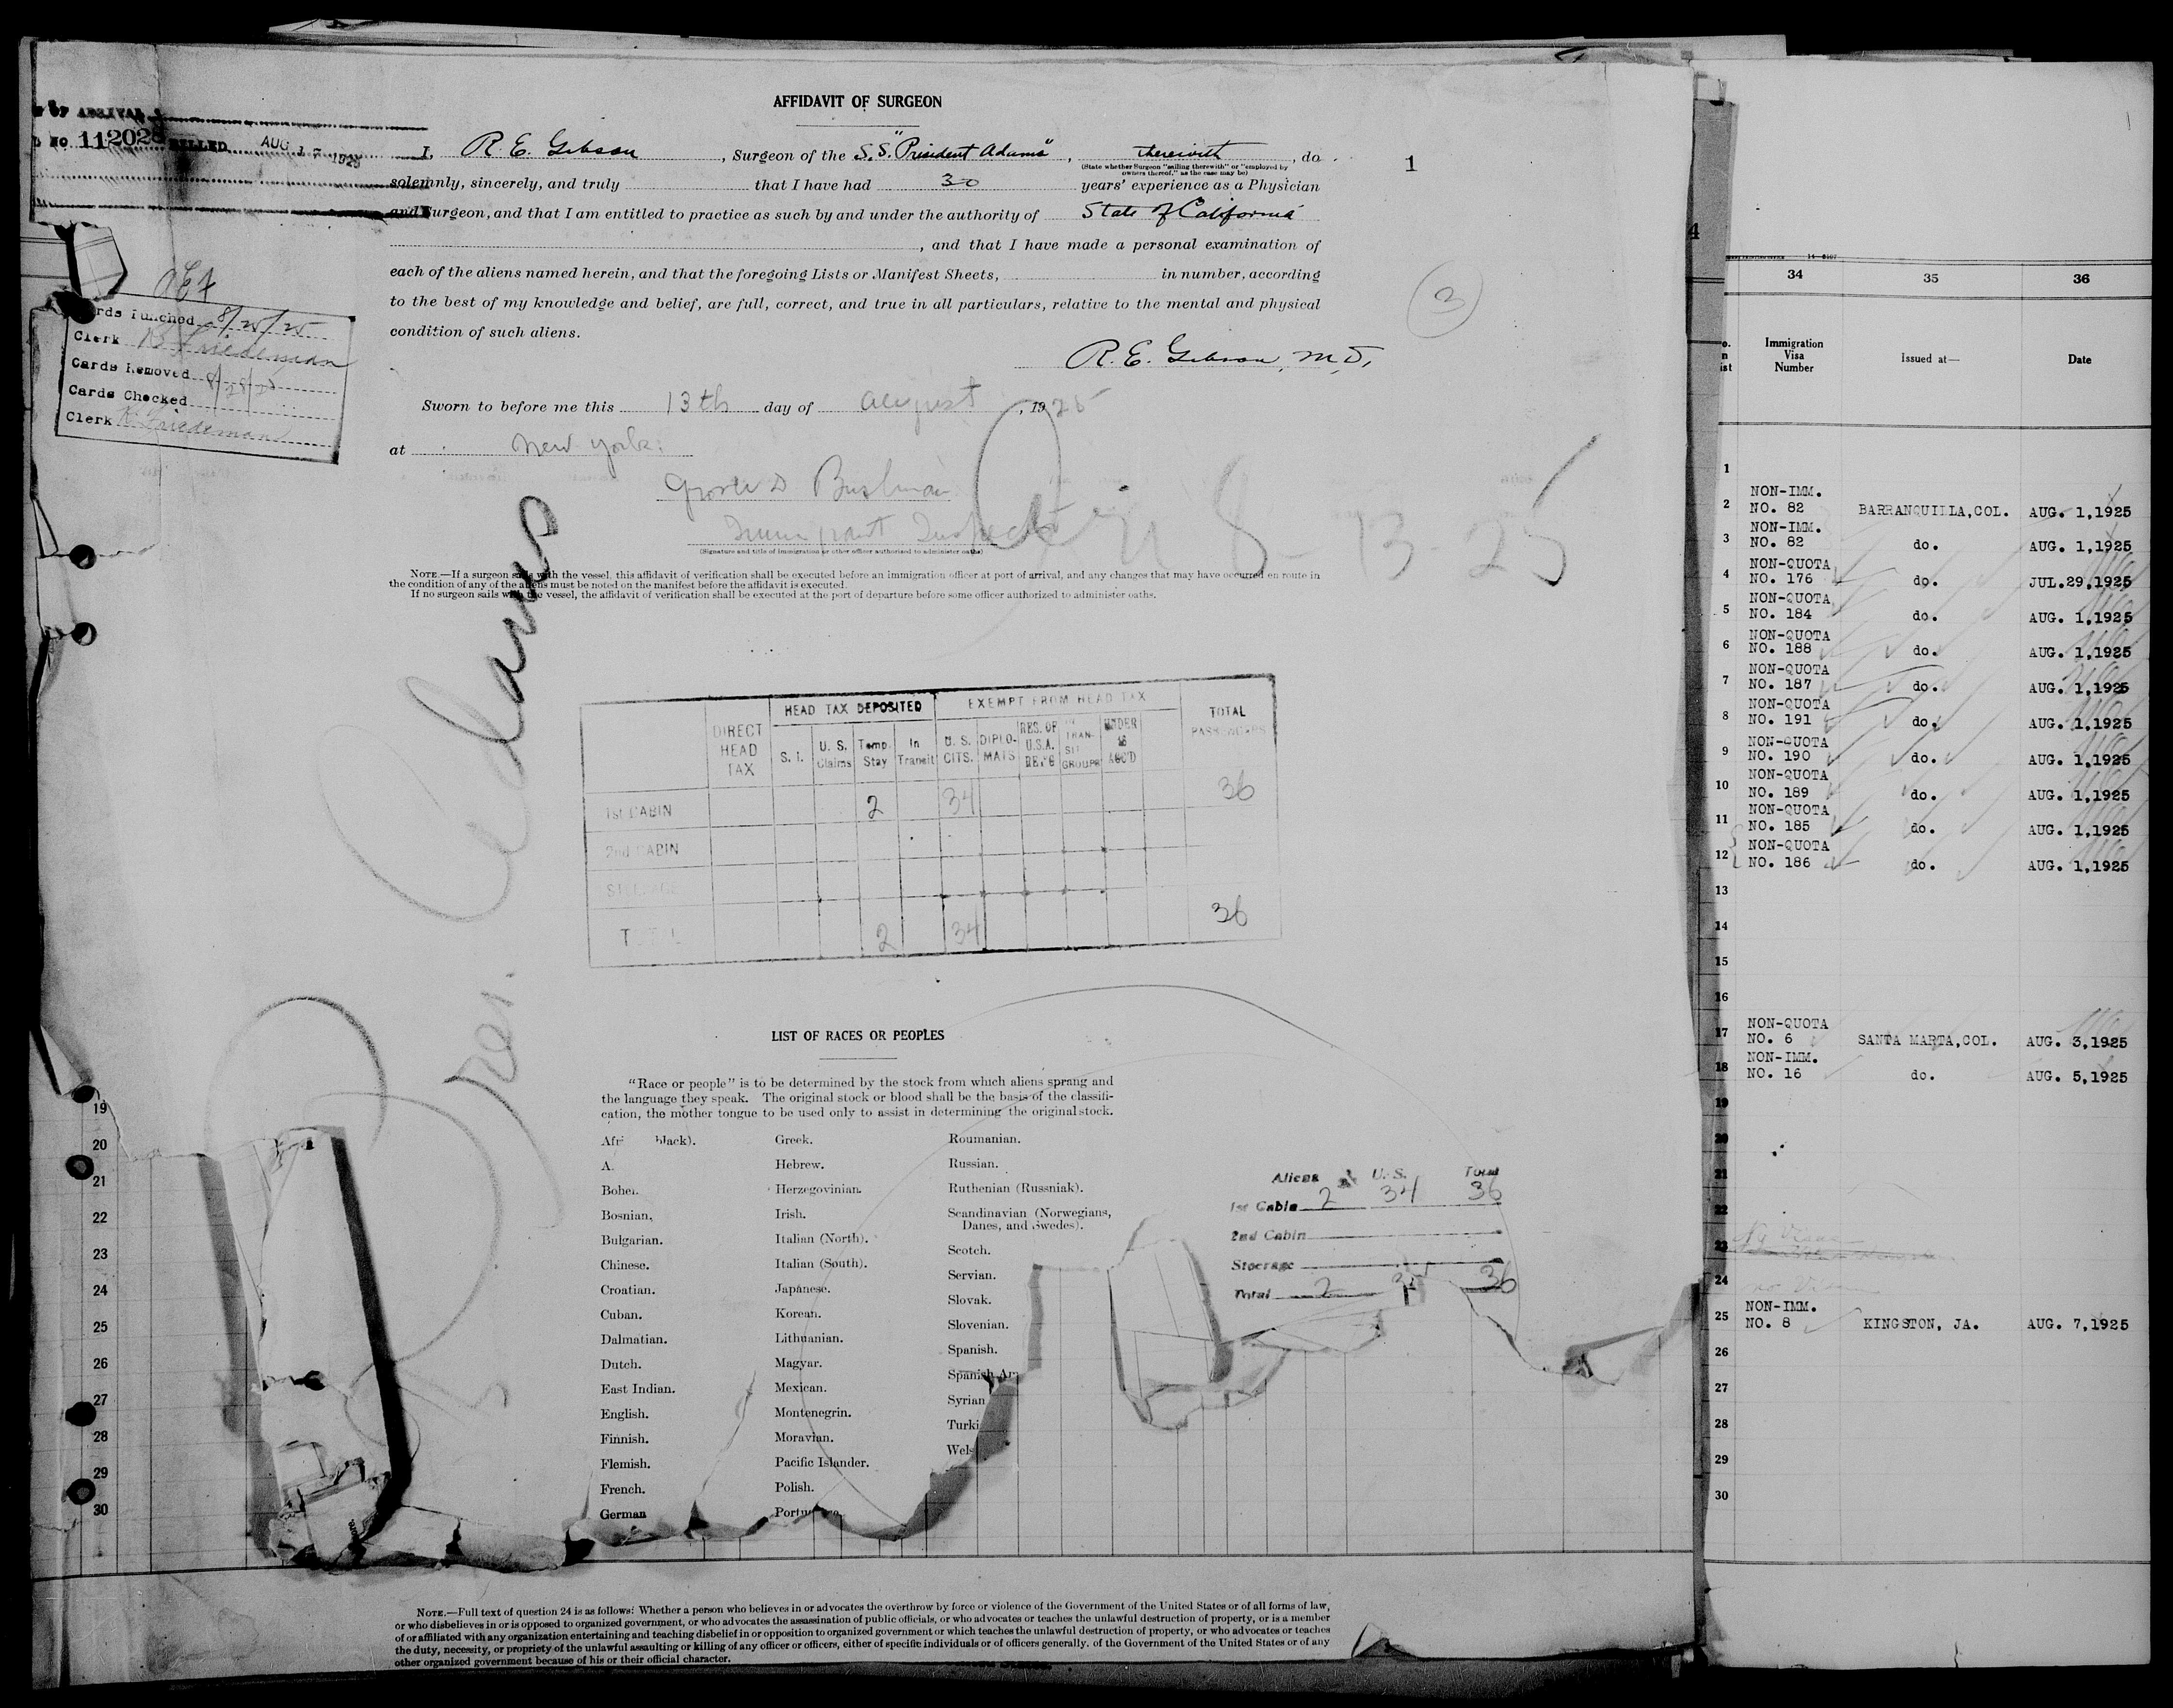 AFFIDAVIT OF SURGEON
OF ARRIVAL
No 112028 BILLED AUG 17 1925
I, R. E. Gibson, Surgeon of the S.S. "President Adams", therewith, do
(State whether Surgeon "sailing therewith" or "employed by
owners thereof," as the case may be)
solemnly, sincerely, and truly that I have had 30 years' experience as a Physician
and Surgeon, and that I am entitled to practice as such by and under the authority of State of California
, and that I have made a personal examination of
each of the aliens named herein, and that the foregoing Lists or Manifest Sheets, in number, according
to the best of my knowledge and belief, are full, correct, and true in all particulars, relative to the mental and physical
condition of such aliens.
R. E. Gibson, M.D,
1
3
Cards Punched 8/25/25
Clerk K Friedeman
Cards Removed
Cards Checked
Clerk K. Friedeman
Sworn to before me this 13th day of August, 1925
at New York.
Bushman
Immigrant Inspector
(Signature and title of immigration or other officer authorized to administer oaths)
8-13-25
NOTE.—If a surgeon sails with the vessel, this affidavit of verification shall be executed before an immigration officer at port of arrival, and any changes that may have occurred en route in
the condition of any of the aliens must be noted on the manifest before the affidavit is executed.
If no surgeon sails with the vessel, the affidavit of verification shall be executed at the port of departure before some officer authorized to administer oaths.
Pres. Adams
DIRECT HEAD TAX
HEAD TAX DEPOSITED
EXEMPT FROM HEAD TAX
TOTAL PASSENGERS
S. I.
U. S. Claims
Temp. Stay
In Transit
U. S. CITS.
DIPLO-MATS
RES. OF U.S.A. RET'G
IN TRAN-SIT GROUPS
UNDER 16 ACC'D
1st CABIN 2 34 36
2nd CABIN
STEERAGE
TOTAL 2 34 36
LIST OF RACES OR PEOPLES
"Race or people" is to be determined by the stock from which aliens sprang and
the language they speak. The original stock or blood shall be the basis of the classifi-
cation, the mother tongue to be used only to assist in determining the original stock.
Afri black).
A.
Bohe
Bosnian.
Bulgarian.
Chinese.
Croatian.
Cuban.
Dalmatian.
Dutch.
East Indian.
English.
Finnish.
Flemish.
French.
German
Greek.
Hebrew.
Herzegovinian.
Irish.
Italian (North).
Italian (South).
Japanese.
Korean.
Lithuanian.
Magyar.
Mexican.
Montenegrin.
Moravian.
Pacific Islander.
Polish.
Roumanian.
Russian.
Ruthenian (Russniak).
Scandinavian (Norwegians,
Danes, and Swedes).
Scotch.
Servian.
Slovak.
Slovenian.
Spanish.
Spanish Am
Syrian
Turki
Wels
Aliens U. S. Total
1st Cabin 2 34 36
2nd Cabin
Steerage
Total 2 34 36
19
20
21
22
23
24
25
26
27
28
29
30
NOTE.—Full text of question 24 is as follows: Whether a person who believes in or advocates the overthrow by force or violence of the Government of the United States or of all forms of law,
or who disbelieves in or is opposed to organized government, or who advocates the assassination of public officials, or who advocates or teaches the unlawful destruction of property, or is a member
of or affiliated with any organization entertaining and teaching disbelief in or opposition to organized government or which teaches the unlawful destruction of property, or who advocates or teaches
the duty, necessity, or propriety of the unlawful assaulting or killing of any officer or officers, either of specific individuals or of officers generally, of the Government of the United States or of any
other organized government because of his or their official character.
4
34 35 36
Immigration Visa Number
Issued at—
Date
1
2 NON-IMM. NO. 82 BARRANQUILLA,COL. AUG. 1,1925
3 NON-IMM. NO. 82 do. AUG. 1,1925
4 NON-QUOTA NO. 176 do. JUL.29,1925
5 NON-QUOTA NO. 184 do. AUG. 1,1925
6 NON-QUOTA NO. 188 do. AUG. 1,1925
7 NON-QUOTA NO. 187 do. AUG. 1,1925
8 NON-QUOTA NO. 191 do. AUG. 1,1925
9 NON-QUOTA NO. 190 do. AUG. 1,1925
10 NON-QUOTA NO. 189 do. AUG. 1,1925
11 NON-QUOTA NO. 185 do. AUG. 1,1925
12 NON-QUOTA NO. 186 do. AUG. 1,1925
13
14
15
16
17 NON-QUOTA NO. 6 SANTA MARTA,COL. AUG. 3,1925
18 NON-IMM. NO. 16 do. AUG. 5,1925
19
20
21
22
23
24 no Visa
25 NON-IMM. NO. 8 KINGSTON, JA. AUG. 7,1925
26
27
28
29
30